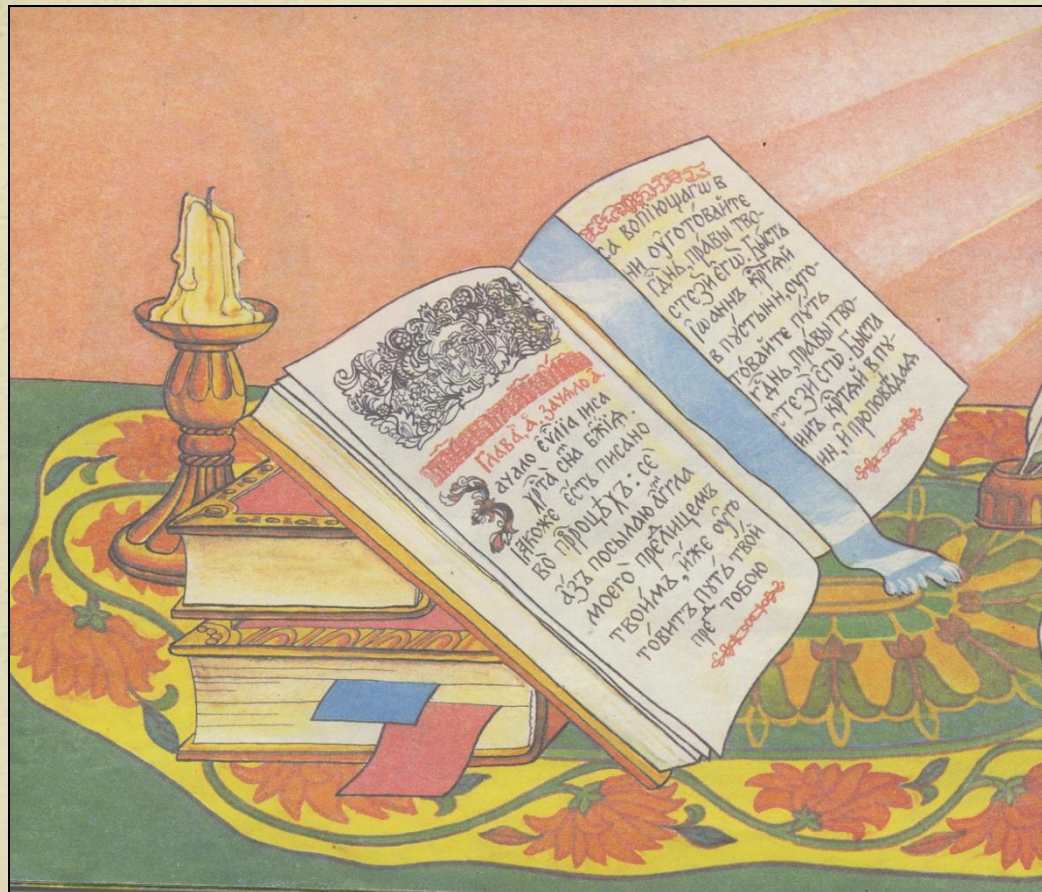 Глава̀, а҃, зачало а҃.
ачало єѵⷢ҇лїа їиса
хрⷭ҇та̀ сн҃а бж҃їѧ.
Ꙗкоже є҆сть писано
во прⷪ҇роцѣхъ: се
а҆зъ посылаю а҆гг҃ла
моегѡ преⷣ лицемъ
твои́мъ, и҆́же оуго
товитъ пꙋть твой
преⷣ тобою
са вопїющагѡ в
ни оуготовайте
гд҃нь, правы тво-
стезѝ є҆гѡ. Бысть
Їѡаннъ крⷭ҇тѧй
в пꙋстыни, оуго-
товайте пꙋть
гд҃нь, правы тво-
стезѝ єгѡ. Бысть
ннъ крⷭ҇тѧй в пꙋ-
ни, и҆ проповѣдаѧ